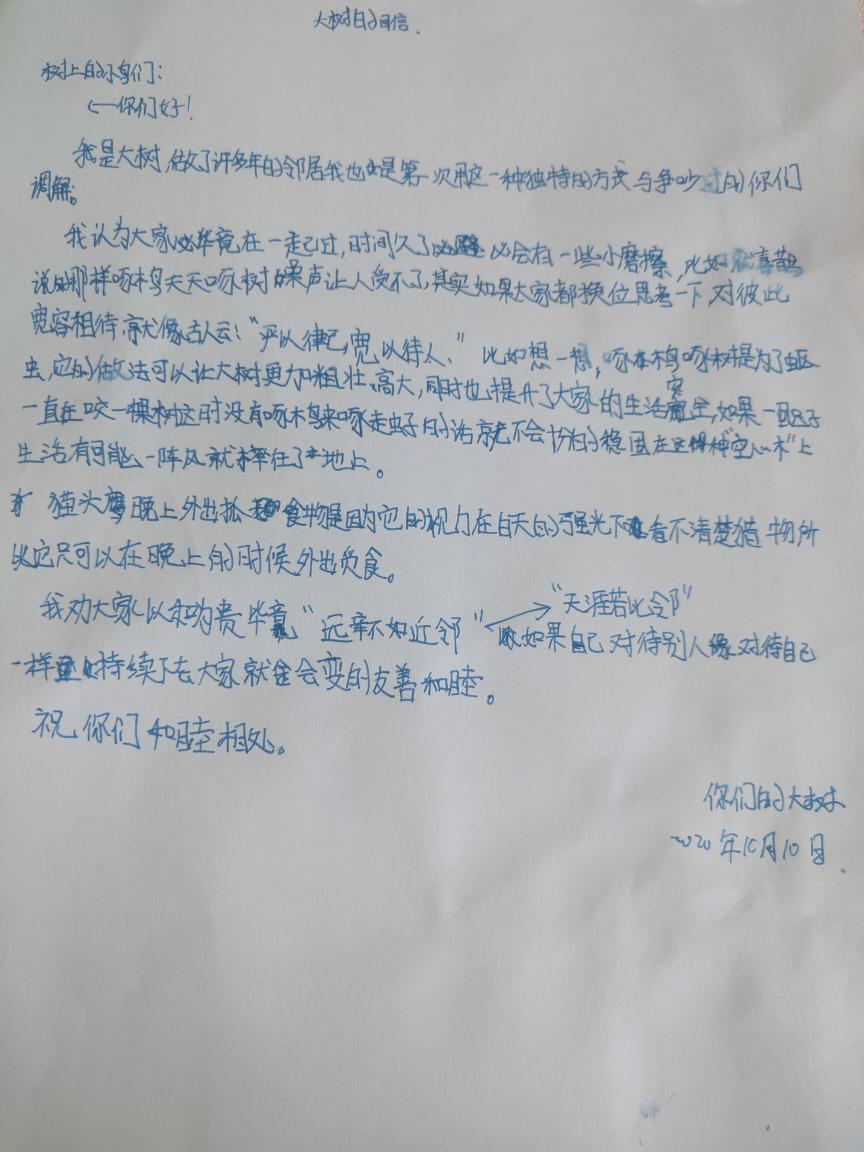 大树的回信.
树上的小鸟们：
你们好！
我是大树，做了许多年的邻居我也是第一次用这一种独特的方式与争吵过的你们
调解。
我认为大家毕竟在一起已过，时间久了必会有一些小磨擦，比如喜鹊
说的那样啄木鸟天天啄树噪声让人受不了，其实如果大家都换位思考一下，对彼此
宽容相待，就像古人云：“严以律己，宽以待人、”比如想一想，啄木鸟啄树是为了
虫，它的做法可以让大树更加粗壮、高大，同时也提升了大家的生活安全，如果一
一直在咬一棵树这时没有啄木鸟来啄走虫子的话就不会的稳固在这种“空心木”上
生活有可能一阵风就摔在了地上。
猫头鹰晚上外出抓食物是因为它的视力在白天的强光下看不清楚猎物所
以它只可以在晚上的时候外出觅食。
我劝大家以和为贵毕竟“远亲不如近邻”“天涯若比邻”
如果自己对待别人像对待自己
一样持续下去大家就会变的友善和睦。
祝你们和睦相处。
你们的大树
2020年10月10日.